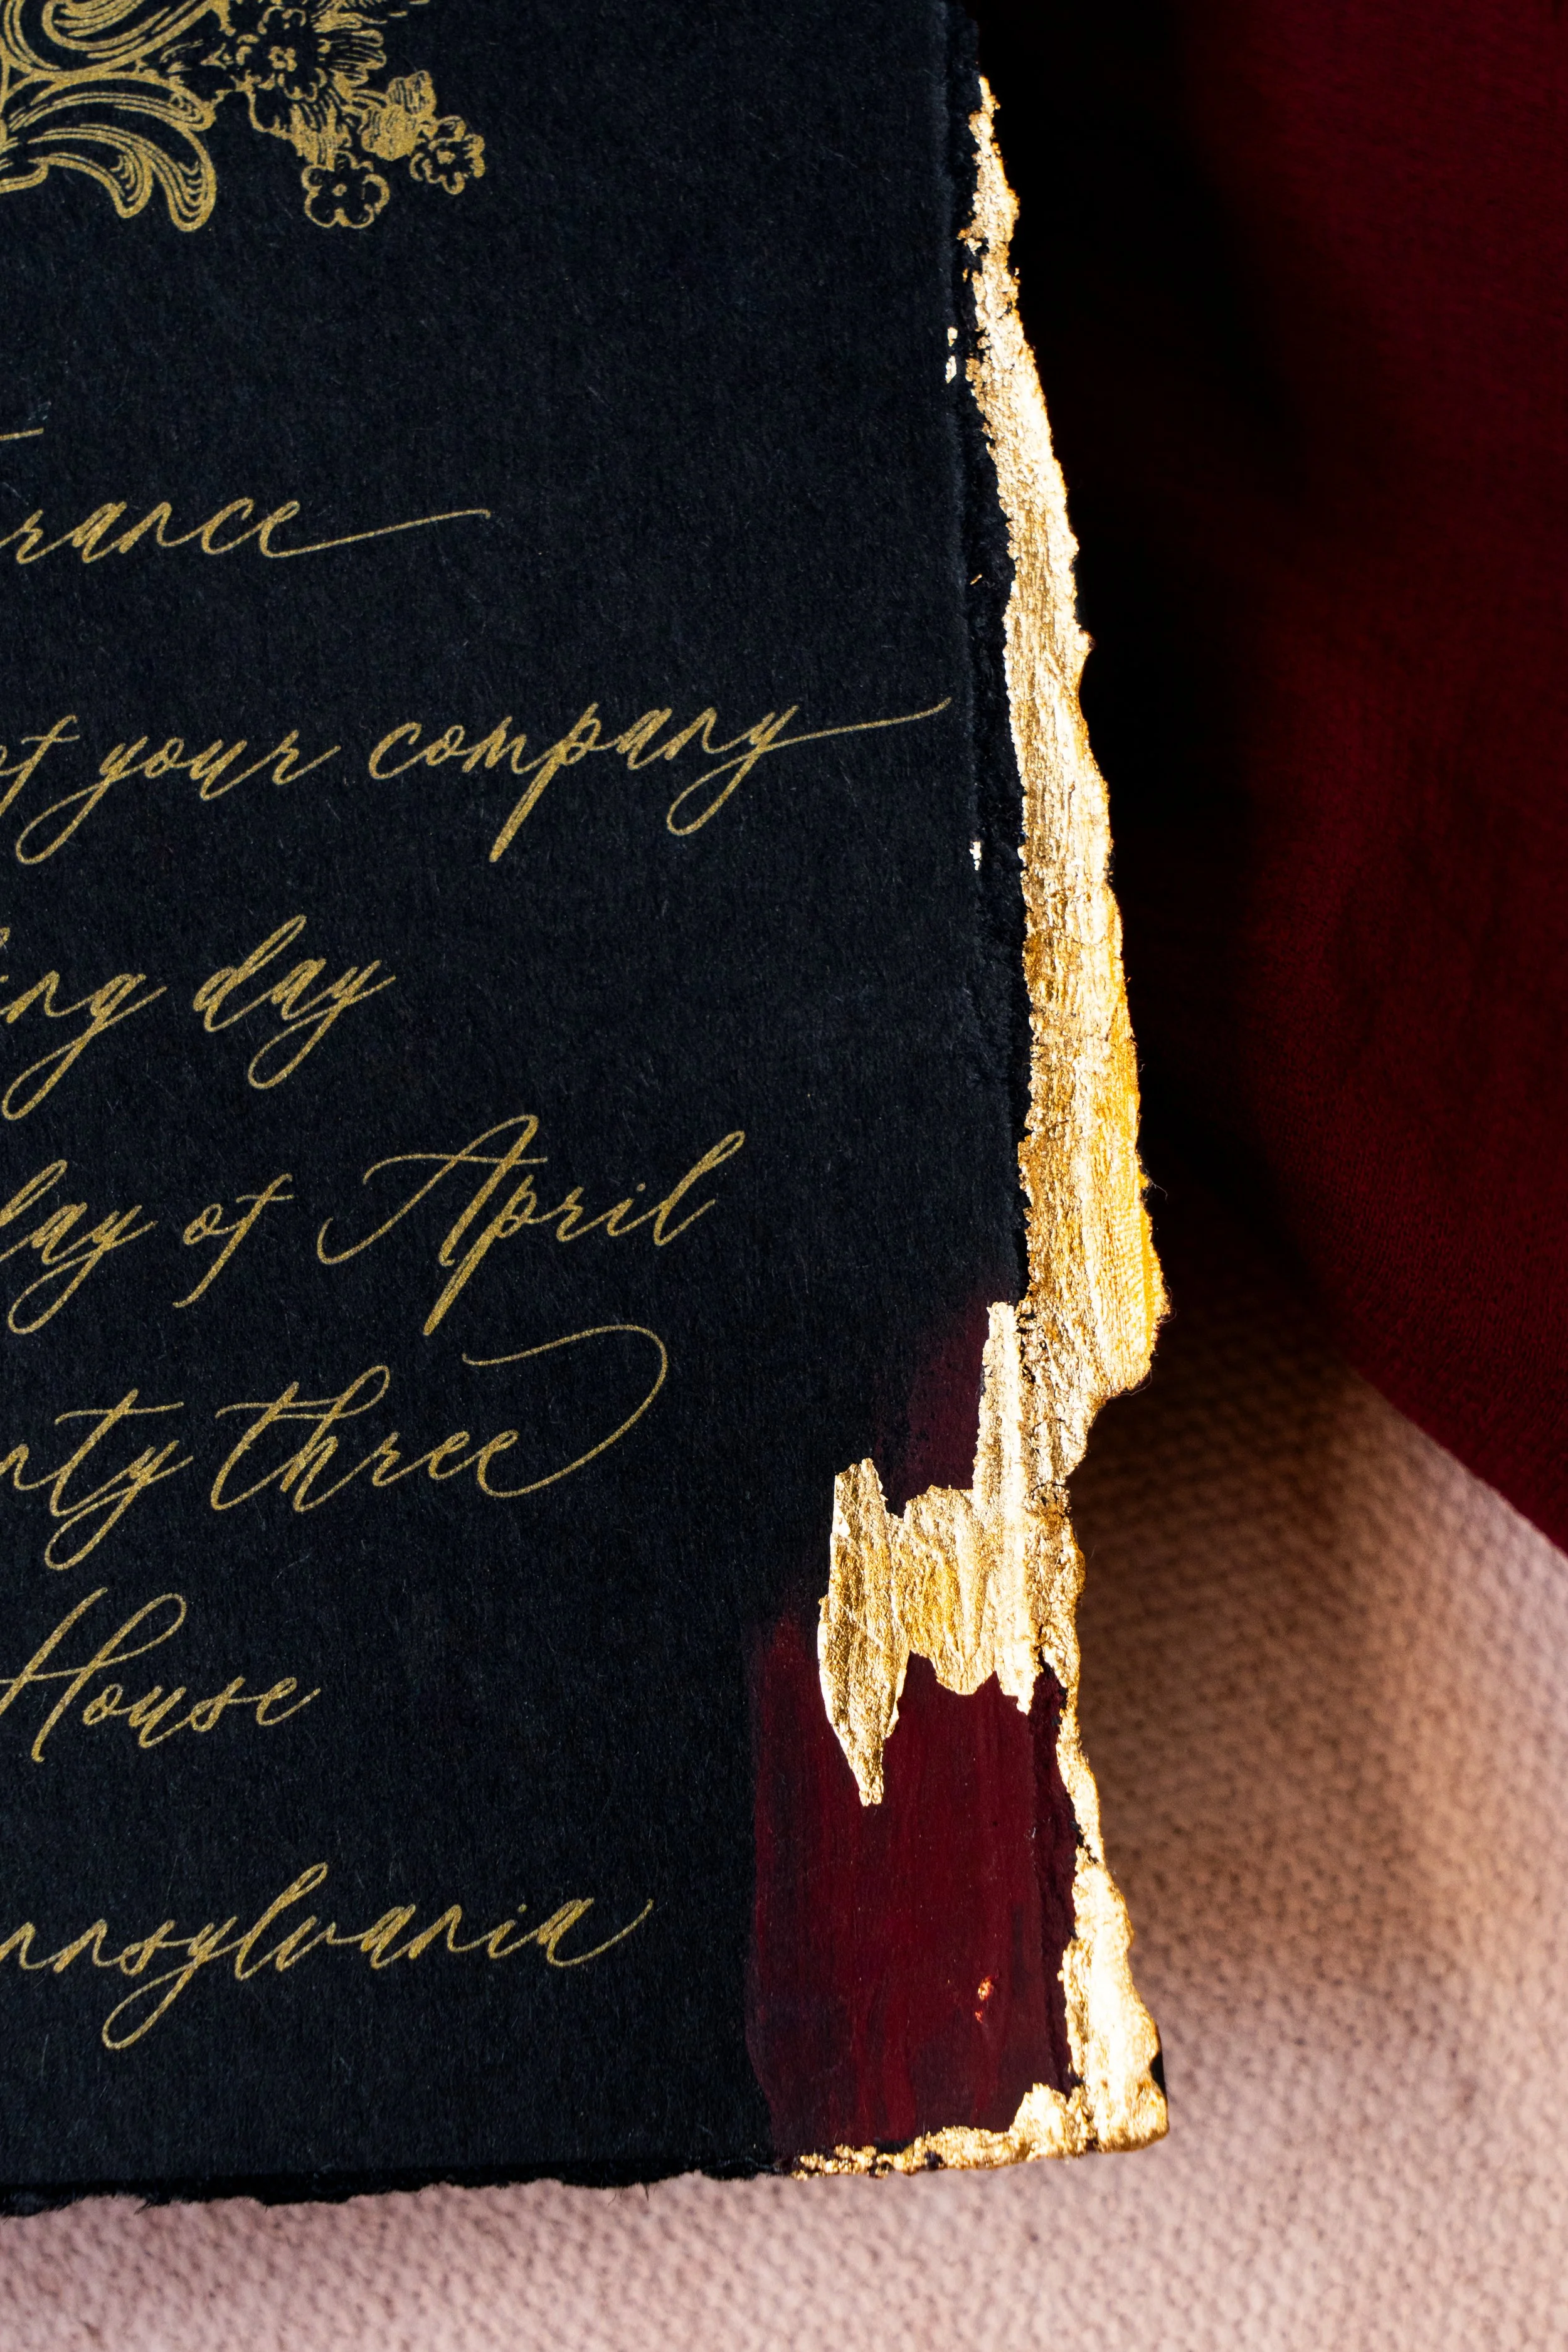 rance
of your company
ing day
day of April
nty three
House
nnsylvania